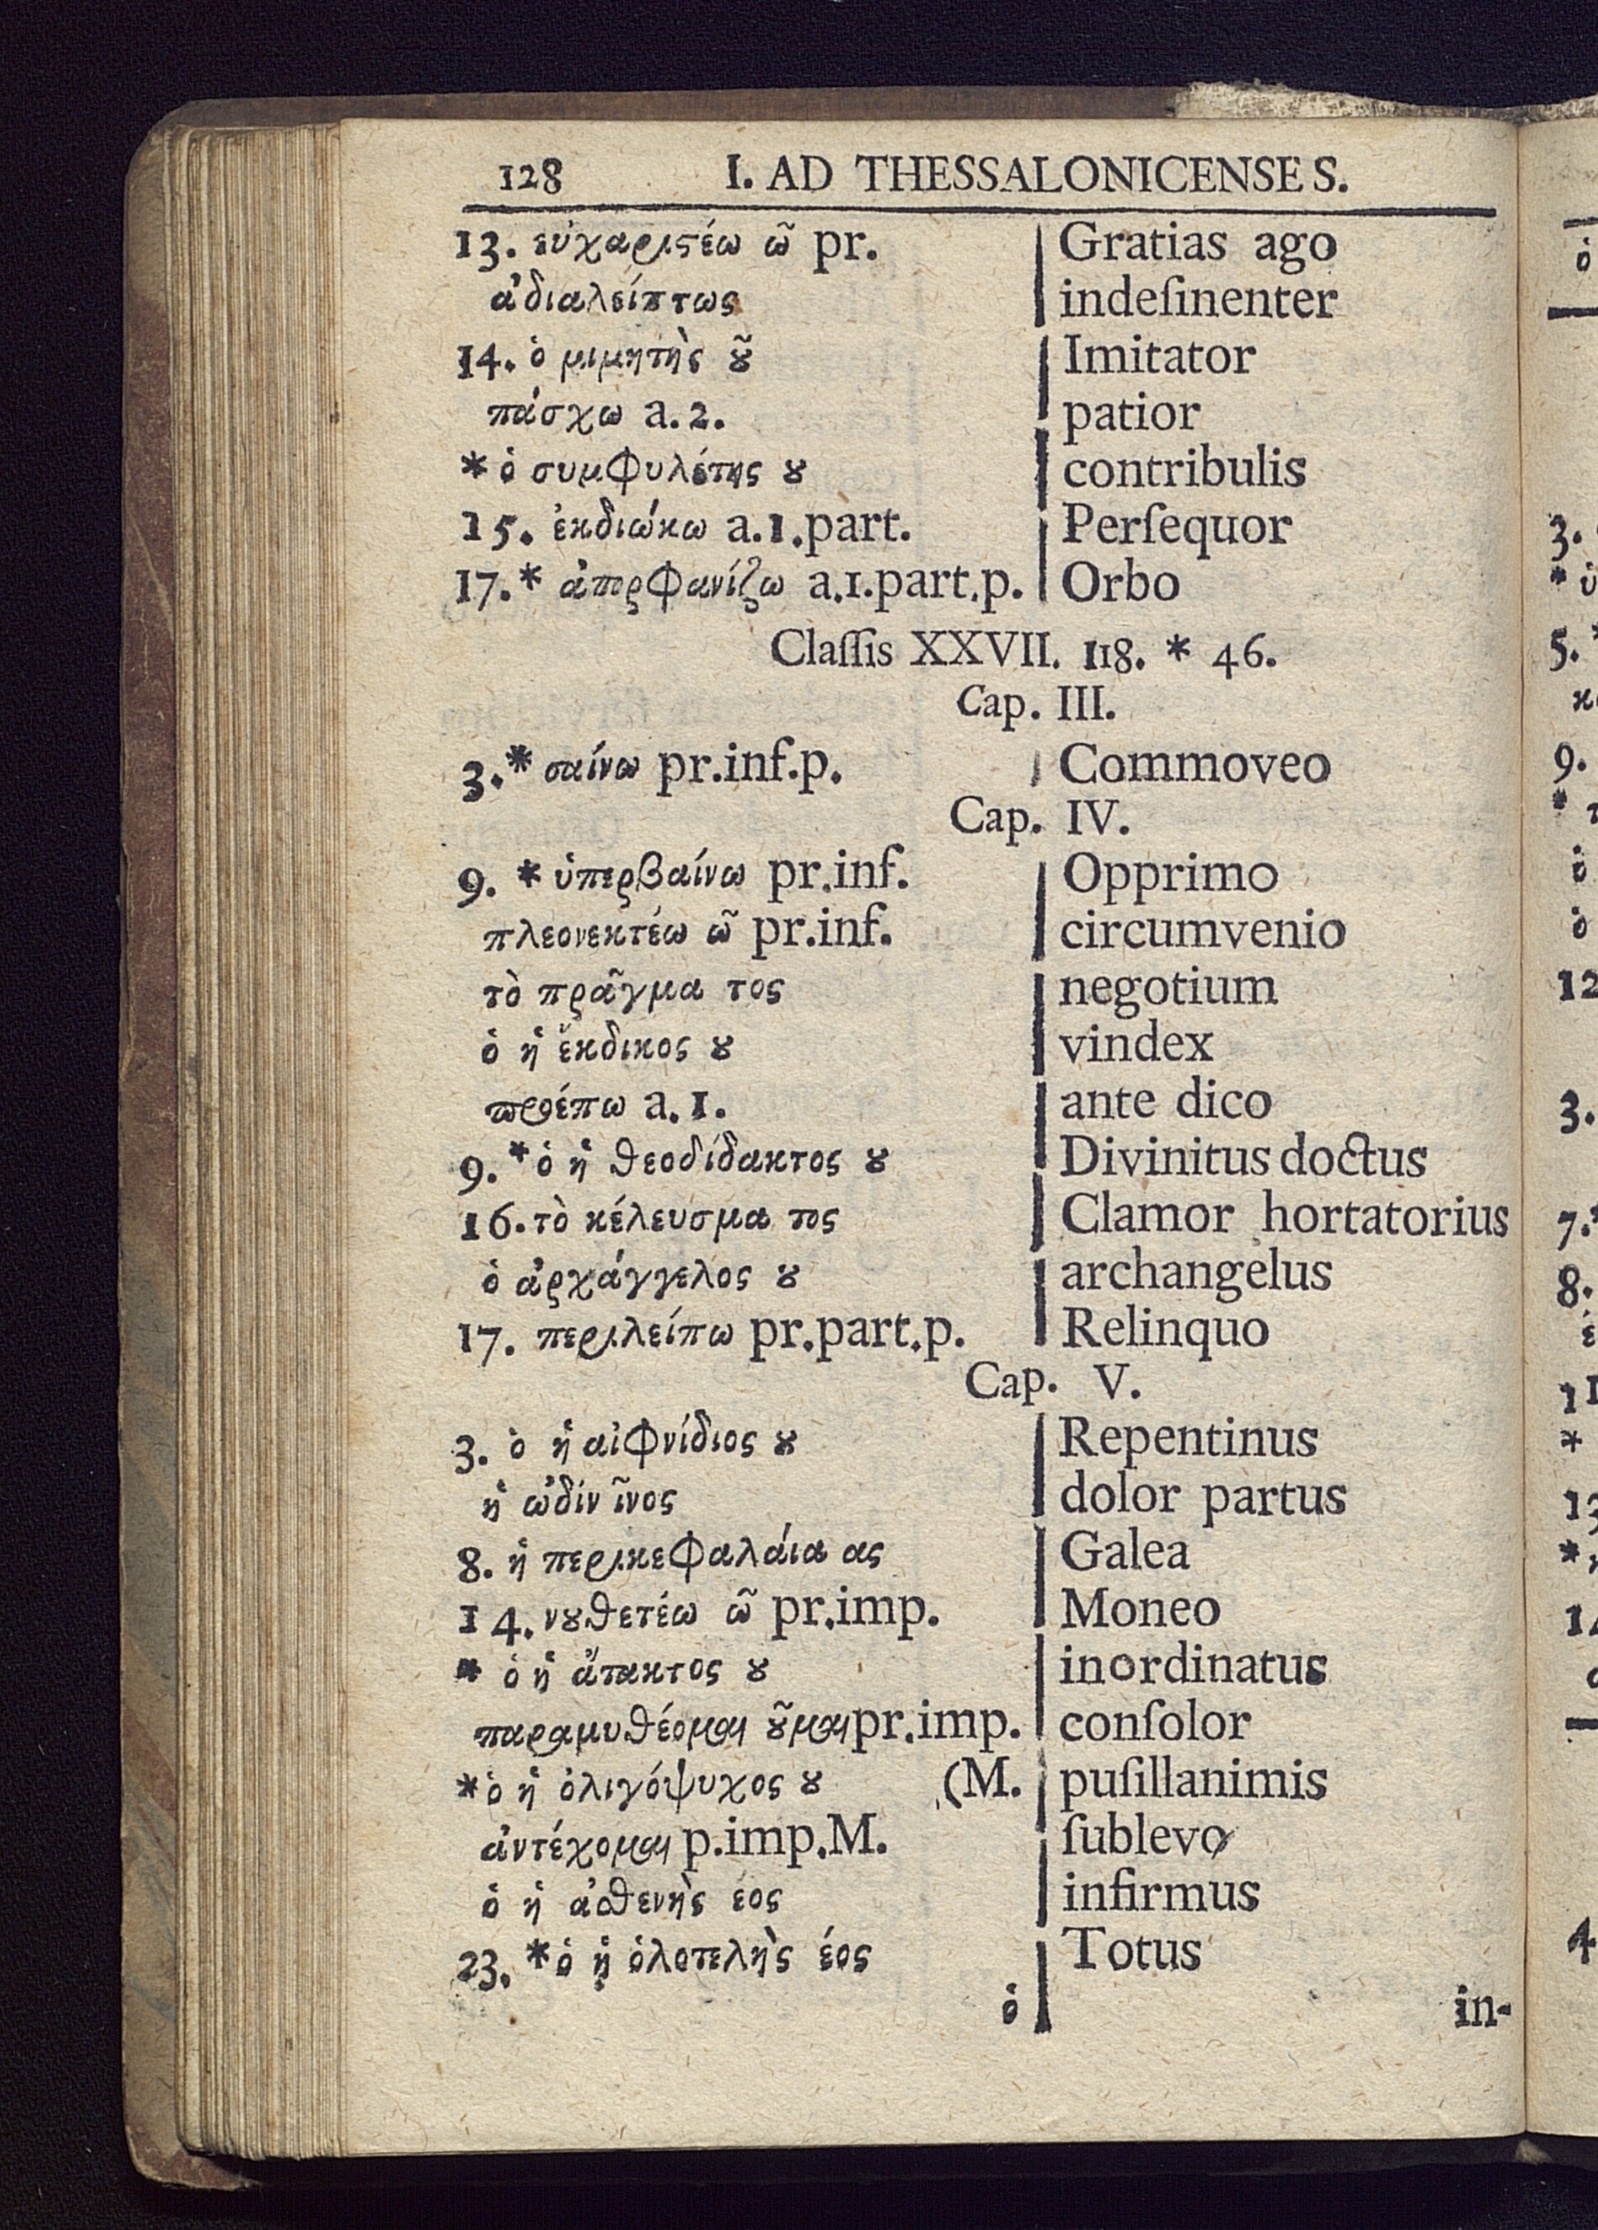 128 I. AD THESSALONICENSES.
13. εὐχαριϛέω ῶ pr. Gratias ago
ἀδιαλείπτως indeſinenter
14. ὁ μιμητὴς ȣ͂ Imitator
πάσχω a.2. patior
* ὁ συμφυλέτης ȣ contribulis
15. ἐκδιώκω a.1.part. Perſequor
17.* ἀπορφανίζω a.1.part.p. Orbo
Claſſis XXVII. 118. * 46.
Cap. III.
3.* σαίνω pr.inf.p. Commoveo
Cap. IV.
9. * ὑπερβαίνω pr.inf. Opprimo
πλεονεκτέω ῶ pr.inf. circumvenio
τὸ πρᾶγμα τος negotium
ὁ ἡ ἔκδικος ȣ vindex
προέπω a.1. ante dico
9. * ὁ ἡ θεοδίδακτος ȣ Divinitus doctus
16. τὸ κέλευσμα τος Clamor hortatorius
ὁ ἀρχάγγελος ȣ archangelus
17. περιλείπω pr.part.p. Relinquo
Cap. V.
3. ὁ ἡ αἰφνίδιος ȣ Repentinus
ἡ ὠδίν ῖνος dolor partus
8. ἡ περικεφαλάια ας Galea
14. νȣθετέω ῶ pr.imp. Moneo
* ὁ ἡ ἄτακτος ȣ inordinatus
παραμυθέομαι ȣ͂μαι pr.imp. conſolor
* ὁ ἡ ὀλιγόψυχος ȣ (M. puſillanimis
ἀντέχομαι p.imp.M. ſublevo
ὁ ἡ ἀσθενὴς έος infirmus
23. * ὁ ἡ ὁλοτελὴς έος Totus
ὁ in-